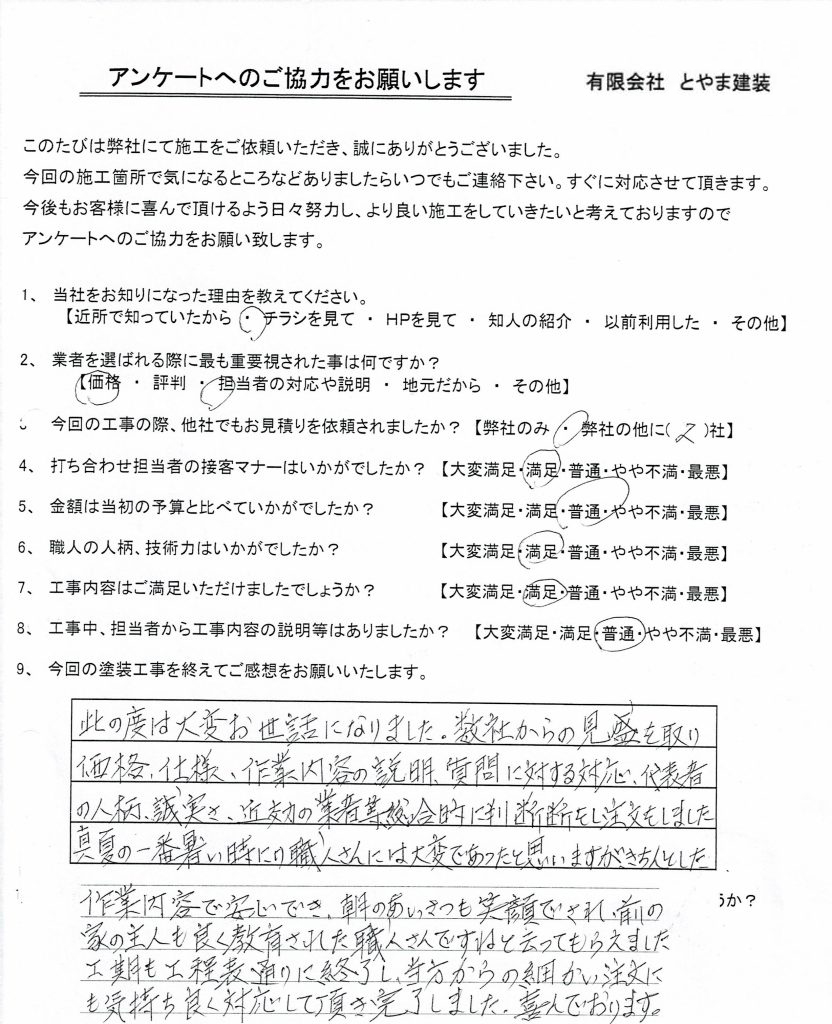 アンケートへのご協力をお願いします
有限会社 とやま建装
このたびは弊社にて施工をご依頼いただき、誠にありがとうございました。
今回の施工箇所で気になるところなどありましたらいつでもご連絡下さい。すぐに対応させて頂きます。
今後もお客様に喜んで頂けるよう日々努力し、より良い施工をしていきたいと考えておりますので
アンケートへのご協力をお願い致します。
1、 当社をお知りになった理由を教えてください。
【近所で知っていたから ・ チラシを見て ・ HPを見て ・ 知人の紹介 ・ 以前利用した ・ その他】
2、 業者を選ばれる際に最も重要視された事は何ですか?
【価格 ・ 評判 ・ 担当者の対応や説明 ・ 地元だから ・ その他】
今回の工事の際、他社でもお見積りを依頼されましたか? 【弊社のみ ・ 弊社の他に( 2 )社】
4、 打ち合わせ担当者の接客マナーはいかがでしたか? 【大変満足・満足・普通・やや不満・最悪】
5、 金額は当初の予算と比べていかがでしたか? 【大変満足・満足・普通・やや不満・最悪】
6、 職人の人柄、技術力はいかがでしたか? 【大変満足・満足・普通・やや不満・最悪】
7、 工事内容はご満足いただけましたでしょうか? 【大変満足・満足・普通・やや不満・最悪】
8、 工事中、担当者から工事内容の説明等はありましたか? 【大変満足・満足・普通・やや不満・最悪】
9、 今回の塗装工事を終えてご感想をお願いいたします。
此の度は大変お世話になりました。数社からの見盛を取り
価格、仕様、作業内容の説明、質問に対する対応、代表者
の人柄、誠実さ、近効の業者等総合的に判断断をし注文をしました
真夏の一番暑い時にり職人さんには大変であったと思いますがきちんとした
作業内容で安心でき、朝のあいさつも笑顔でされ、前の
うか?
家の主人も良く教育された職人さんですねと云ってもらえました
工期も工程表通りに終了し、当方からの細かい注文に
も気持ち良く対応して頂き完了しました。喜んでおります。